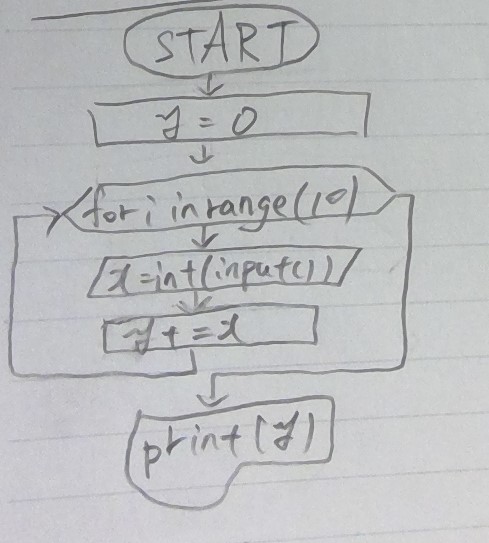 START
y = 0
for i in range(10)
x=int(input())
y+=x
print(y)